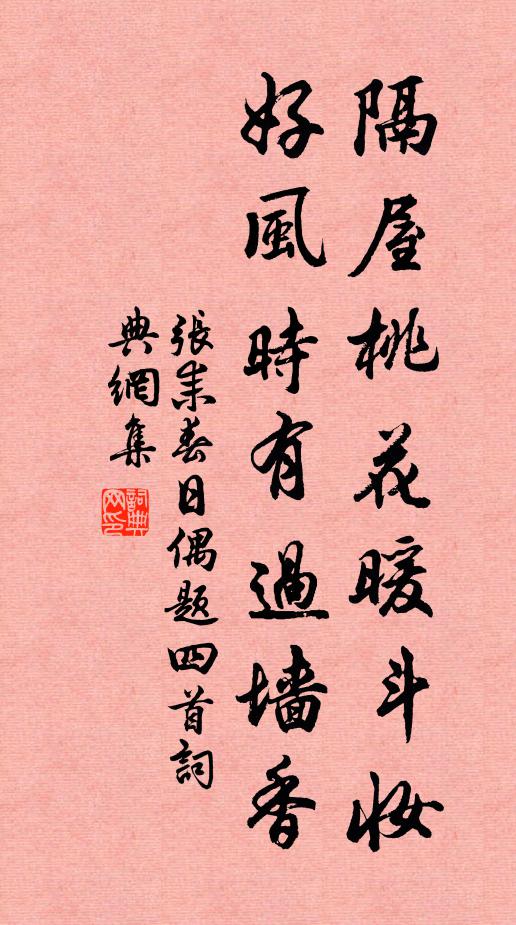 隔屋桃花暖斗妝
好風時有過墻香
張耒春日偶題四首詞
典網集
詞典網印